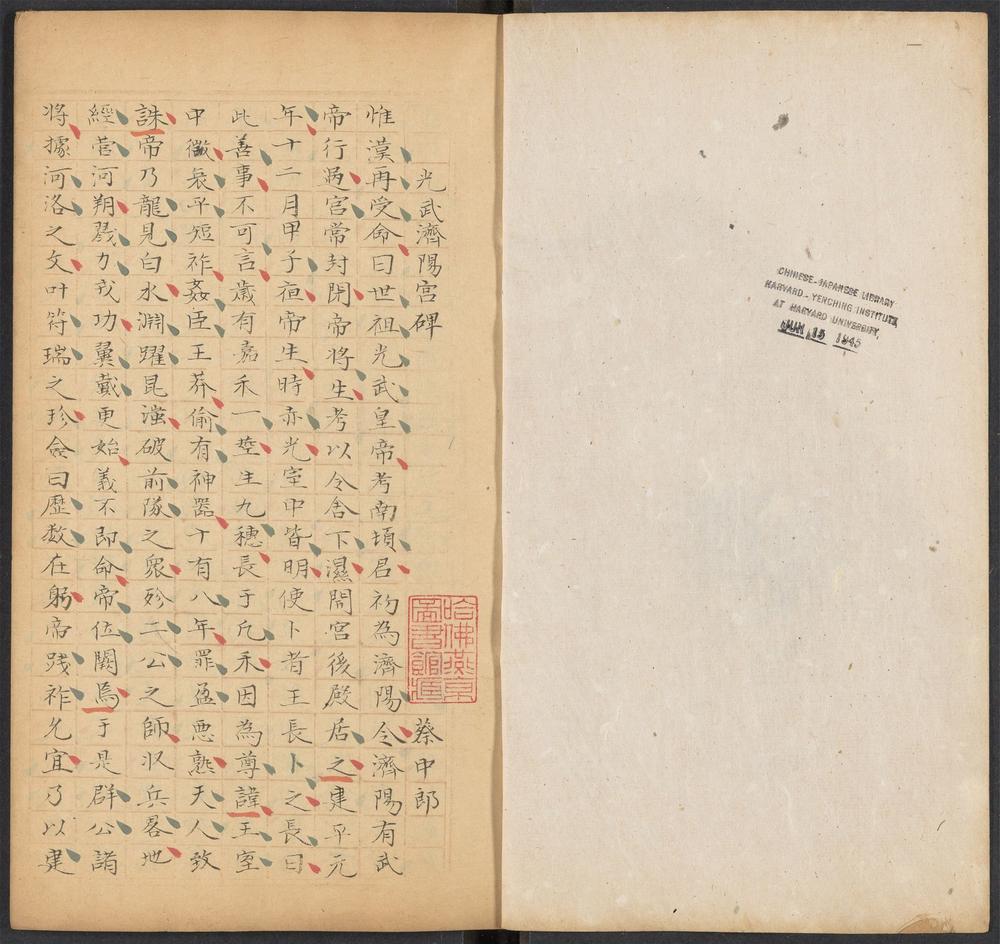 光武濟陽宮碑
蔡中郎
惟漢再受命曰世祖光武皇帝考南頓君初為濟陽令濟陽有武
帝行過宮常封閉帝將生考以令舍下濕開宮後殿居之建平元
年十二月甲子夜帝生時赤光室中皆明使卜者王長卜之長曰
此善事不可言歲有嘉禾一莖生九穗長于凡禾因為尊諱王室
中微哀平短祚姦臣王莽偷有神器十有八年罪盈惡熟天人致
誅帝乃龍見白水淵躍昆滍破前隊之衆殄二公之師收兵畧地
經營河朔戮力戎功翼戴更始義不即命帝位闕焉于是群公諸
將據河洛之文叶符瑞之珍僉曰歷數在躬帝踐祚允宜乃以建
哈佛燕京
圖書館藏
CHINESE-JAPANESE LIBRARY
HARVARD-YENCHING INSTITUTE
AT HARVARD UNIVERSITY,
JUN 15 1945